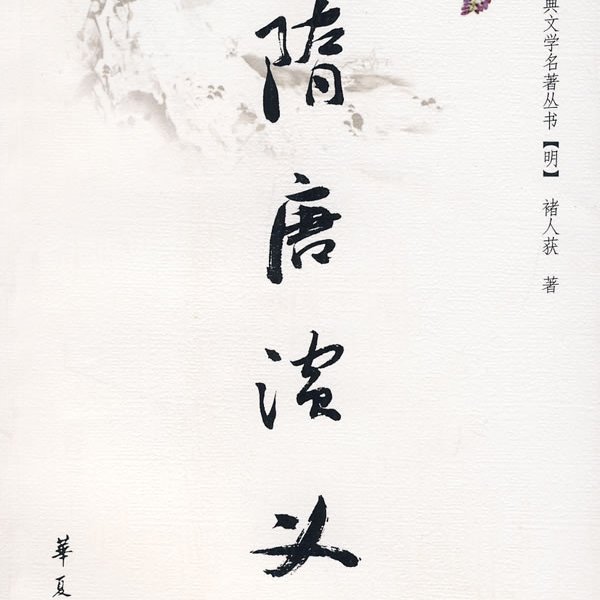 典文学名著丛书【明】 褚人获 著
隋唐演义
華夏